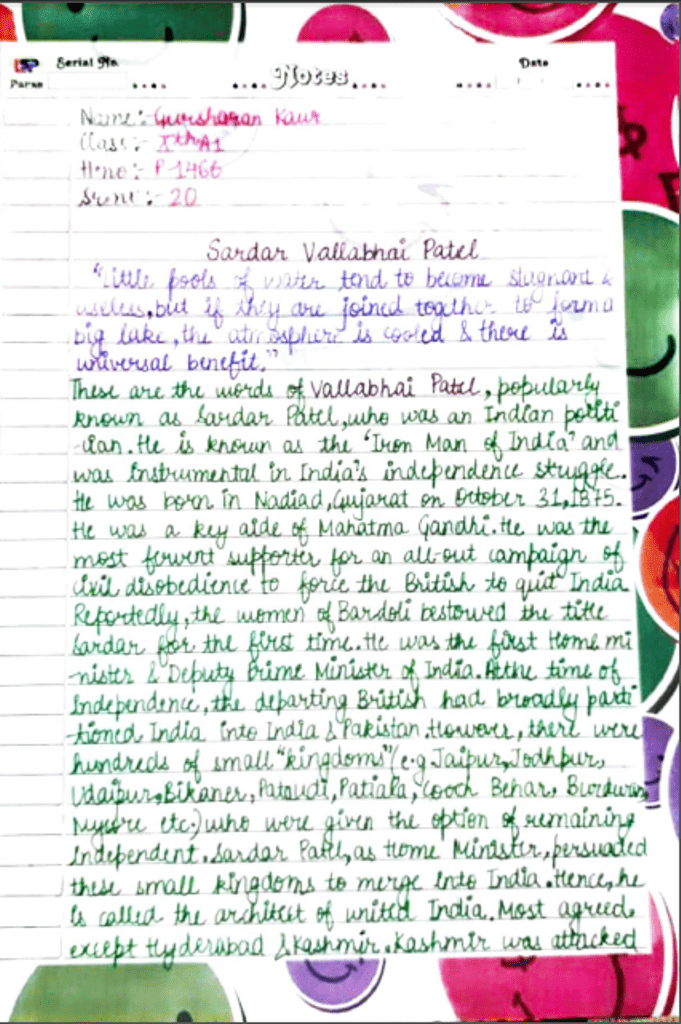 Serial No.
Notes
Date
Name:- Gursharan Kaur
Class:- Xth A1
H.no:- P-1466
Sr.no:- 20
Sardar Vallabhai Patel
"Little pools of water tend to become stagnant &
useless, but if they are joined together to form a
big lake, the atmosphere is cooled & there is
universal benefit."
These are the words of Vallabhai Patel, popularly
known as Sardar Patel, who was an Indian politi
-cian. He is known as the 'Iron Man of India' and
was instrumental in India's independence struggle.
He was born in Nadiad, Gujarat on October 31, 1875.
He was a key aide of Mahatma Gandhi. He was the
most fervent supporter for an all-out campaign of
civil disobedience to force the British to quit India
Reportedly, the women of Bardoli bestowed the title
Sardar for the first time. He was the first Home mi
-nister & Deputy Prime Minister of India. At the time of
Independence, the departing British had broadly parti
-tioned India into India & Pakistan. However, there were
hundreds of small "kingdoms" (e.g Jaipur, Jodhpur,
Udaipur, Bikaner, Pataudi, Patiala, Cooch Behar, Burdwan,
Mysore etc.) who were given the option of remaining
Independent. Sardar Patel, as Home Minister, persuaded
these small kingdoms to merge into India. Hence, he
is called the architect of united India. Most agreed
except Hyderabad & Kashmir. Kashmir was attacked